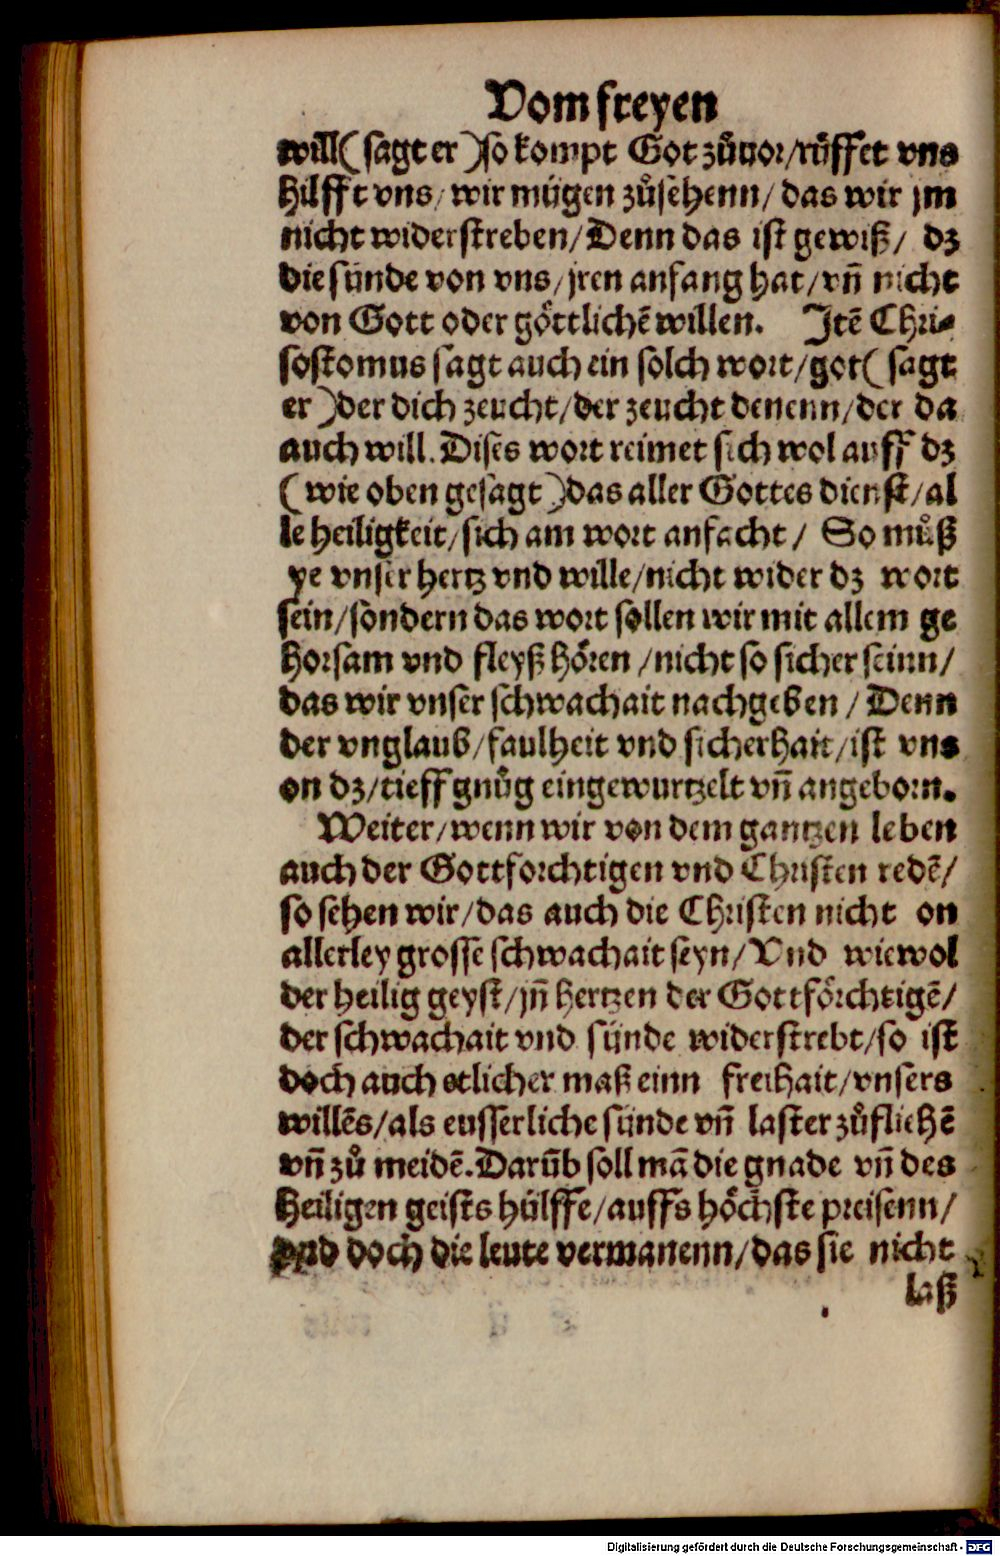 Vom freyen
will (sagt er) so kompt Got zůuor/růffet vns
hilfft vns/wir mügen zůsehenn/das wir jm
nicht widerstreben/Denn das ist gewiß/ dz
die sünde von vns/jren anfang hat/vn̄ nicht
von Gott oder göttlichē willen. Jtē Chri⸗
sostomus sagt auch ein solch wort/got (sagt
er) der dich zeucht/der zeucht denenn/der da
auch will. Dises wort reimet sich wol auff dz
(wie oben gesagt) das aller Gottes dienst/al
le heiligkeit/sich am wort anfacht/ So můß
ye vnser hertz vnd wille/nicht wider dz wort
sein/sondern das wort sollen wir mit allem ge
horsam vnd fleyß hören/nicht so sicher seinn/
das wir vnser schwachait nachgeben/Denn
der vnglaub/faulheit vnd sicherhait/ist vns
on dz/tieff gnůg eingewurtzelt vn̄ angeborn.
Weiter/wenn wir von dem gantzen leben
auch der Gottforchtigen vnd Christen redē/
so sehen wir/das auch die Christen nicht on
allerley grosse schwachait seyn/Vnd wiewol
der heilig geyst/jn̄ hertzen der Gottförchtigē/
der schwachait vnd sünde widerstrebt/so ist
doch auch etlicher maß einn freihait/vnsers
willēs/als eusserliche sünde vn̄ laster zůfliehē
vn̄ zů meidē. Darūb soll mā die gnade vn̄ des
Heiligen geists hülffe/auffs höchste preisenn/
vnd doch die leute vermanenn/das sie nicht
laß
Digitalisierung gefördert durch die Deutsche Forschungsgemeinschaft - DFG